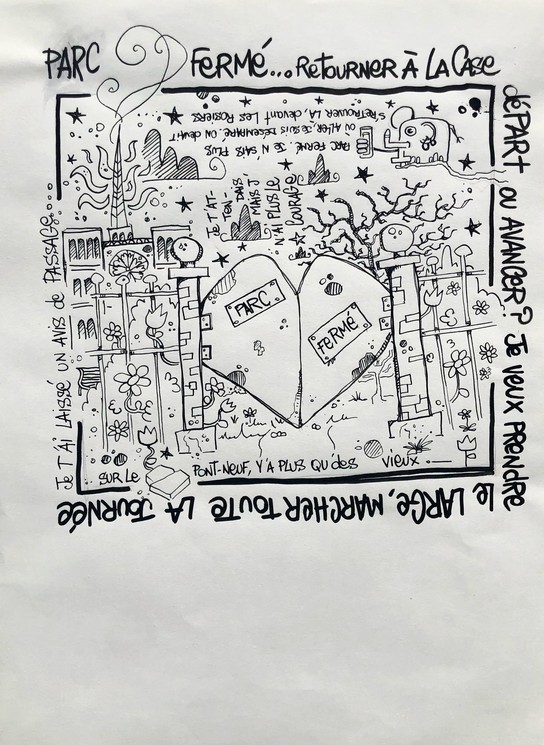 PARC FERMÉ... RETOURNER À LA CASE
DÉPART OU AVANCER? JE VEUX PRENDRE
LE LARGE, MARCHER TOUTE LA JOURNÉE
JE T'AI LAISSÉ UN AVIS DE PASSAGE....
SUR LE PONT-NEUF, Y'A PLUS QU'DES VIEUX
PARC FERMÉ. JE N'SAIS PLUS
OÙ ALLER, JE SUIS DÉSEMPARÉ. ON DEVAIT
S'RETROUVER LÀ, DEVANT LES ROSIERS
JE T'AT-
TEND DANS
MAIS J'
N'AI PLUS LE
COURAGE
PARC
FERMÉ